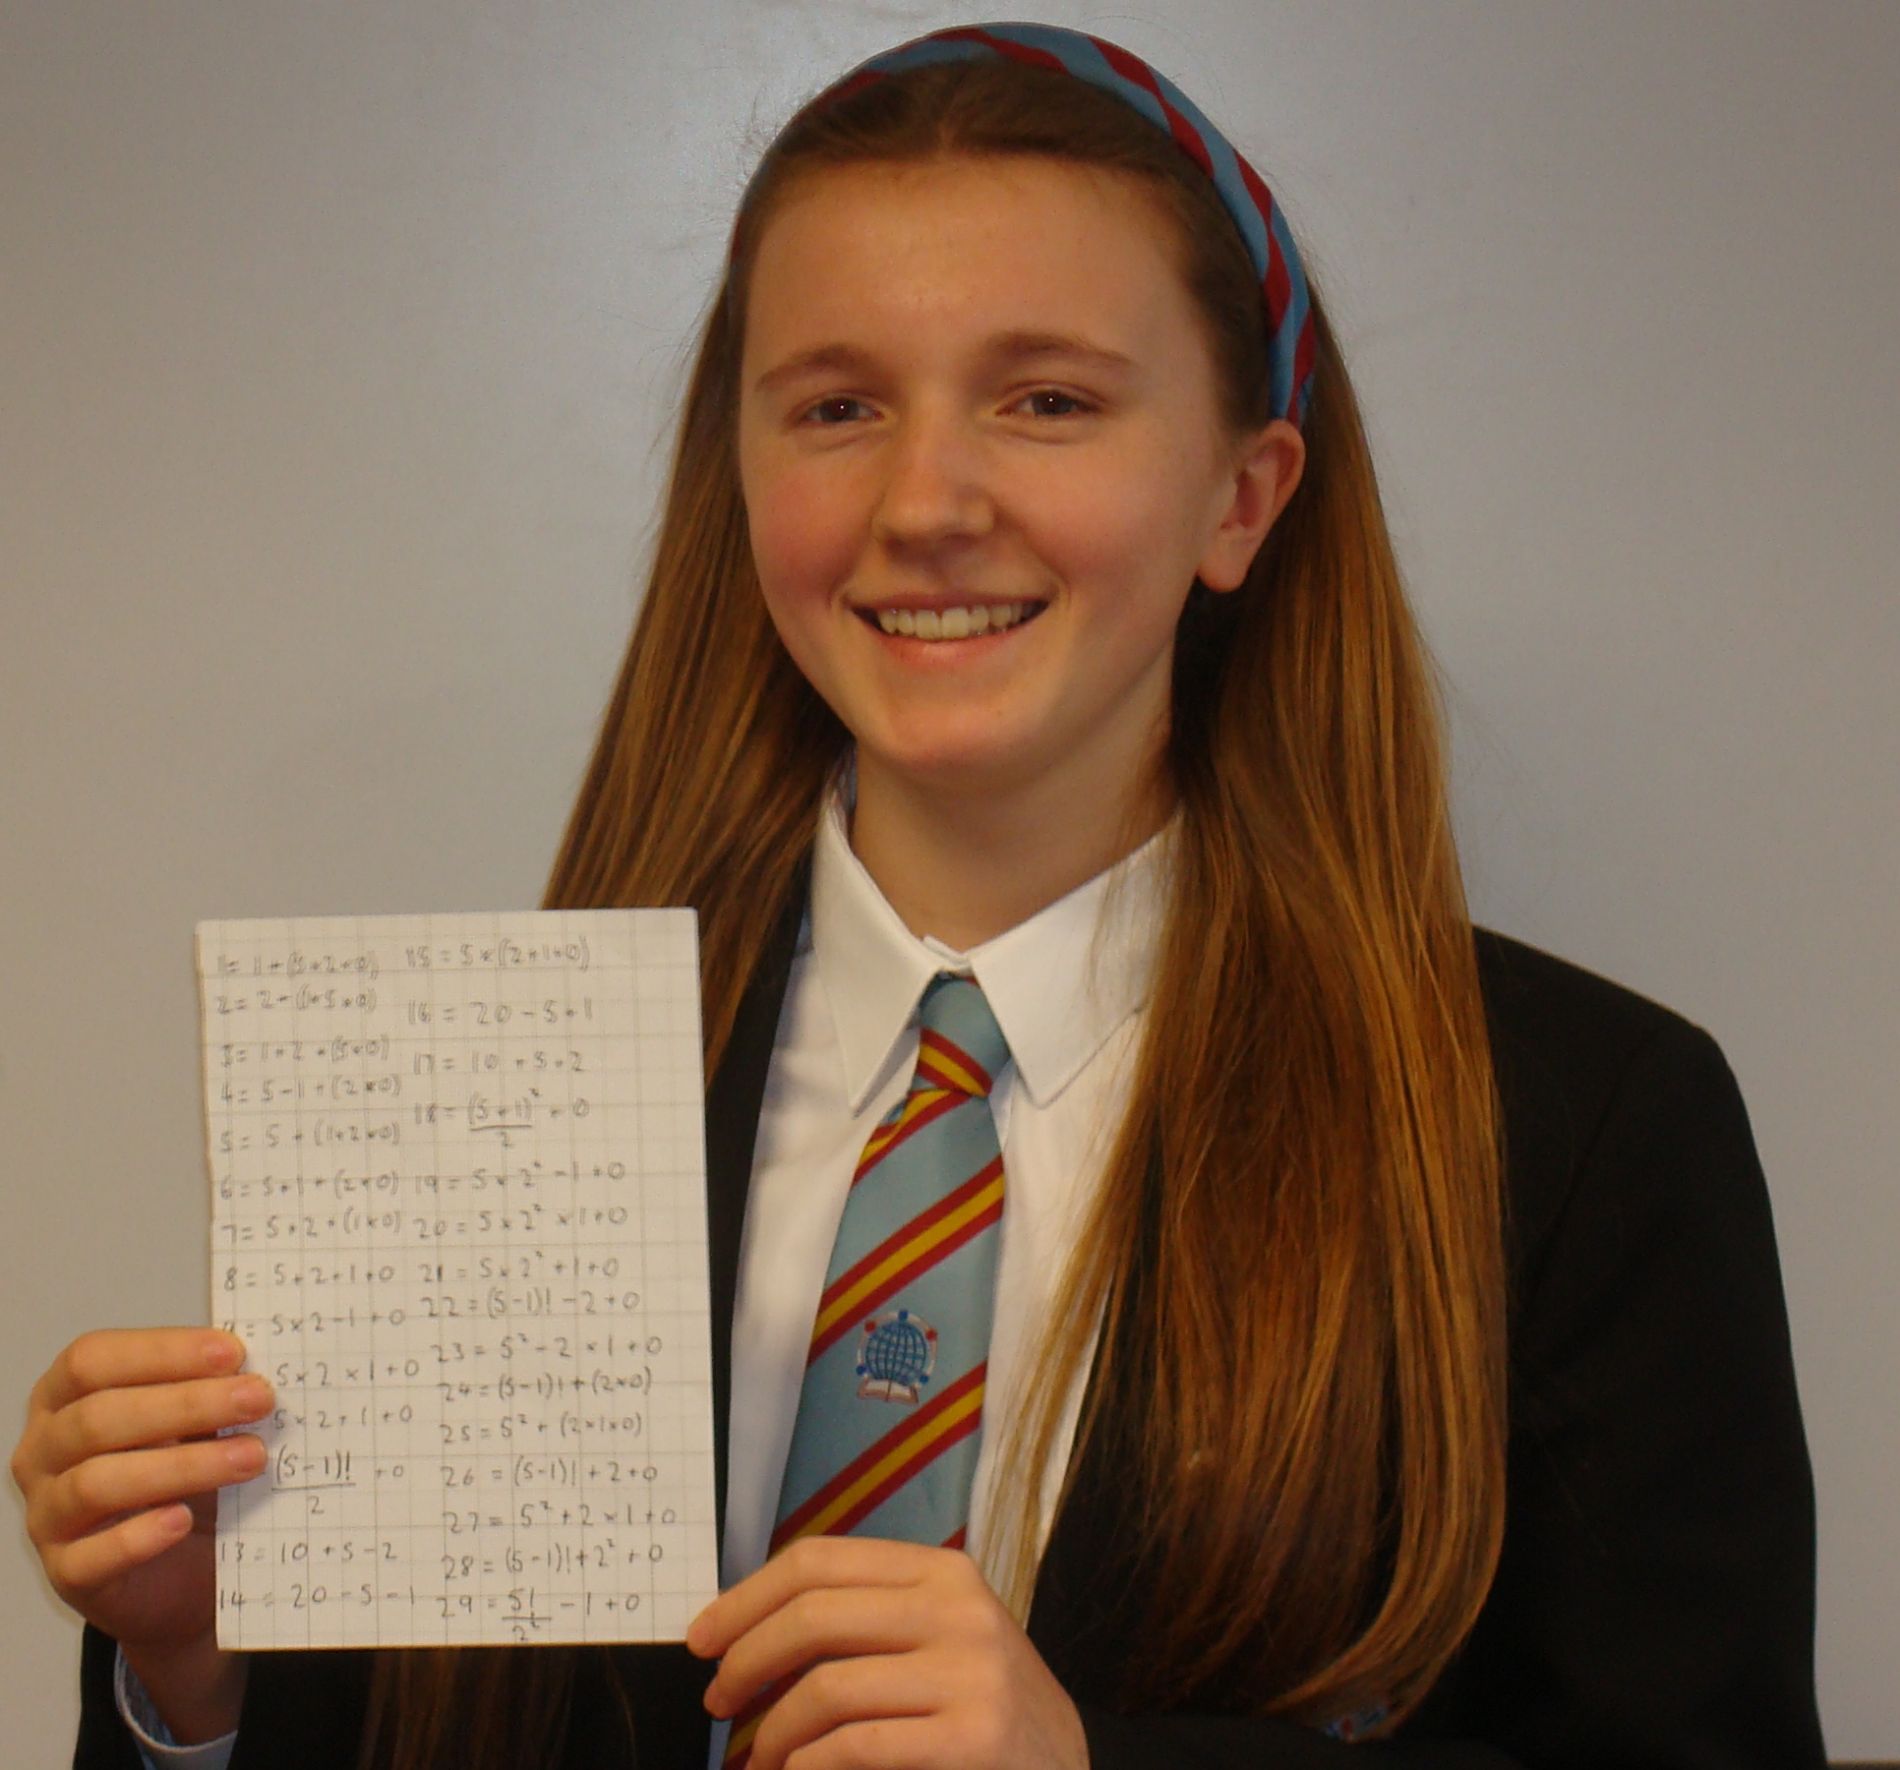 1 = 1 + (5×2×0)
2 = 2 + (1×5×0)
3 = 1+2 + (5×0)
4 = 5-1 + (2×0)
5 = 5 + (1×2×0)
6 = 5+1 + (2×0)
7 = 5+2 + (1×0)
8 = 5+2+1+0
= 5×2-1+0
5×2×1+0
5×2+1+0
(5-1)! +0
2
13 = 10+5-2
14 = 20-5-1
15 = 5×(2+1+0)
16 = 20-5+1
17 = 10+5+2
18 = (5+1)² +0
2
19 = 5×2²-1+0
20 = 5×2²×1+0
21 = 5×2²+1+0
22 = (5-1)!-2+0
23 = 5²-2×1+0
24 = (5-1)!+(2×0)
25 = 5²+(2×1×0)
26 = (5-1)!+2+0
27 = 5²+2×1+0
28 = (5-1)!+2²+0
29 = 5! -1+0
2²